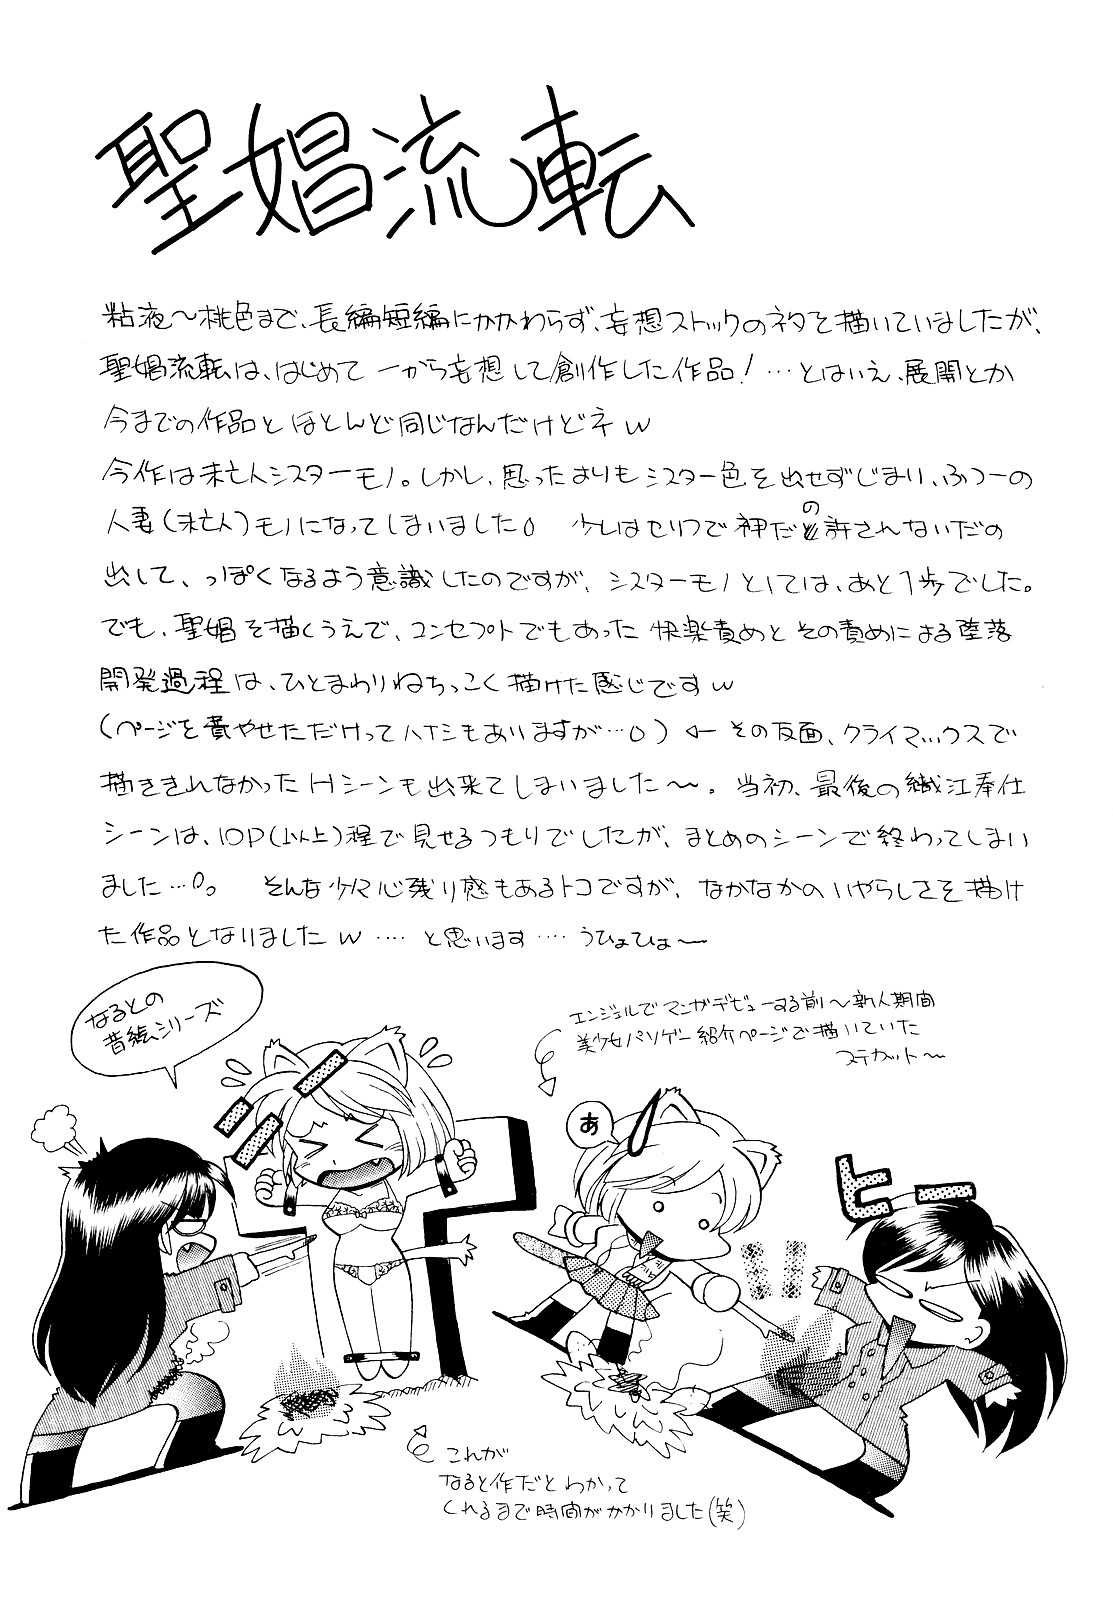 聖娼流転
粘液～桃色まで、長編短編にかかわらず、妄想ストックのネタを描いていましたが、
聖娼流転は、はじめて一から妄想して創作した作品！…とはいえ、展開とか
今までの作品とほとんど同じなんだけどネw
今作は未亡人シスターモノ。しかし、思ったよりもシスター色を出せずじまい、ふつーの
人妻（未亡人）モノになってしまいました
少しはセリフで神だの許されないだの
出して、っぽくなるよう意識したのですが、シスターモノとしては、あと1歩でした。
でも、聖娼を描くうえで、コンセプトでもあった快楽責めとその責めによる堕落
開発過程は、ひとまわりねちっこく描けた感じですw
（ページを費やせただけってハナシもありますが…）← その反面、クライマックスで
描ききれなかったHシーンも出来てしまいました～。当初、最後の織江奉仕
シーンは、10P（以上）程で見せるつもりでしたが、まとめのシーンで終わってしまい
ました…。 そんな少々心残り感もあるトコですが、なかなかのいやらしさを描け
た作品となりましたw …. と思います …. うひょひょ～
なるとの
昔絵シリーズ
エンジェルでマンガデビューする前～新人期間
美少女パソゲー紹介ページで描いていた
ステカット～
あ
ヒー
これが
なると作だとわかって
くれるまで時間がかかりました（笑）